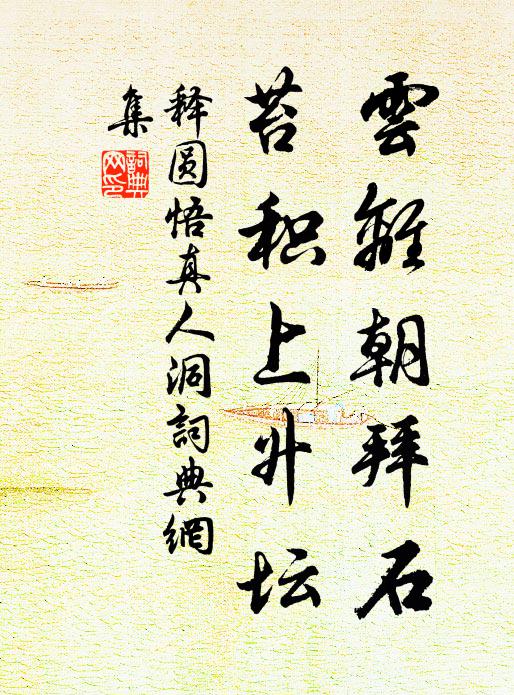 雲離朝拜石
苔积上升坛
释圆悟真人洞詞典網
集
詞典
网印